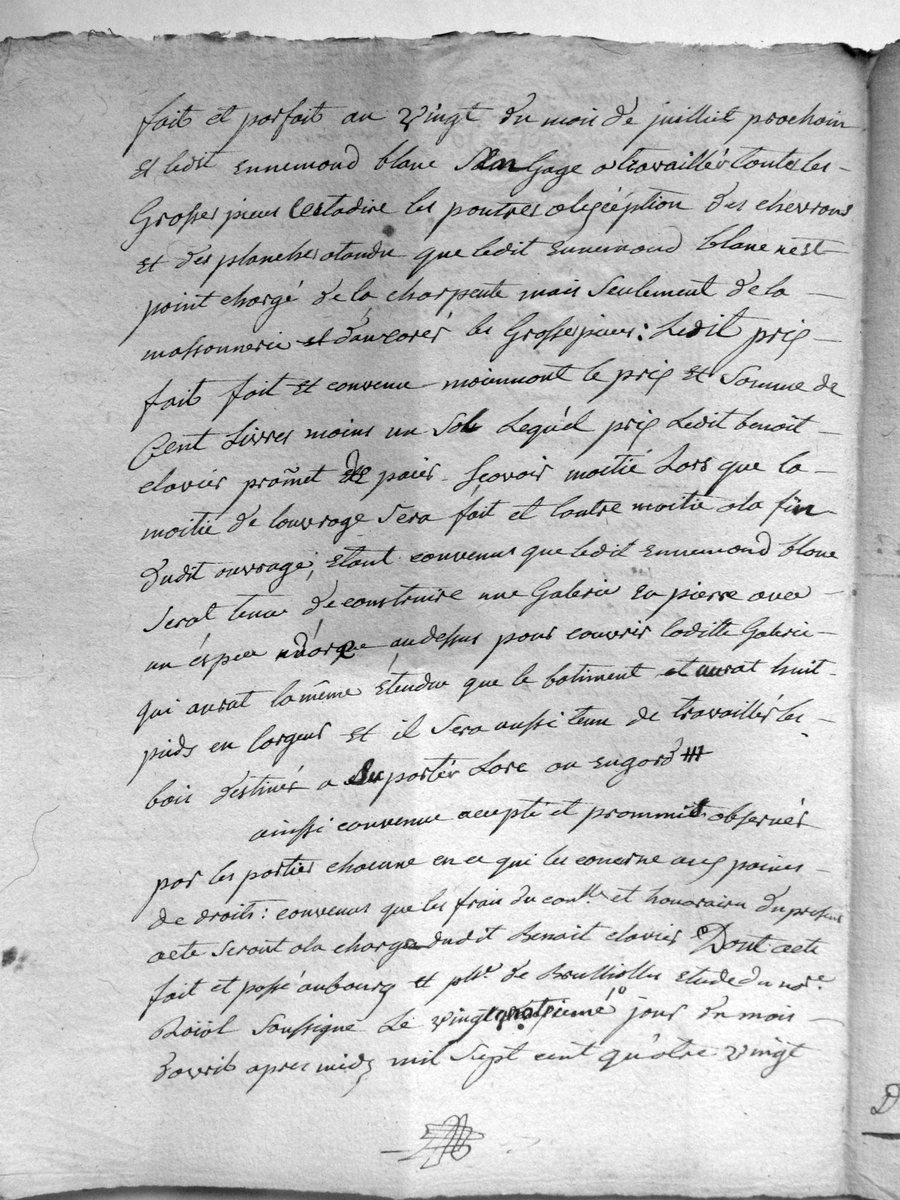 fait et parfait au vingt du mois de juilliet prochain
et ledit Ennemond blanc s'en Gage a travaillér toutes les
Grosses pieces Cestadire les poutres alexception des chevrons
et des planches atandu que ledit Ennemond blanc n'est
point chargé de la charpente mais seulement de la
massonnerie et les Grosses pieces: Ledit prix
fait fait et convenu moiennant le prix et somme de
Cent Livres moins un sol Lequel prix ledit benoit
clavier promet de paier Scavoir moitié Lors que la
moitié de louvrage sera fait et lautre moitié a la fin
dudit ouvrage; étant convenus que ledit Ennemond blanc
serat tenu de construire une Galerie en pierre avec
un éspece au dessus pour couvrir laditte Galerie
qui aurat la même éténdue que le batiment et aurat huit
pieds en largeur et il sera aussi tenu de travaillér les
bois déstinés a suportér
ainssi convenu accepté et prommis observér
par les parties chacune en ce qui les concerne aux paines
de droits: convenus que les frais du conlle et honoraires du present
acte seront a la charge dudit Benoit clavier Dont acte
fait et passé au bourg et de Brulliolles etude du nore
Roïal soussigné Le jour du mois
d'avril apres midy mil sept cent quatre vingt